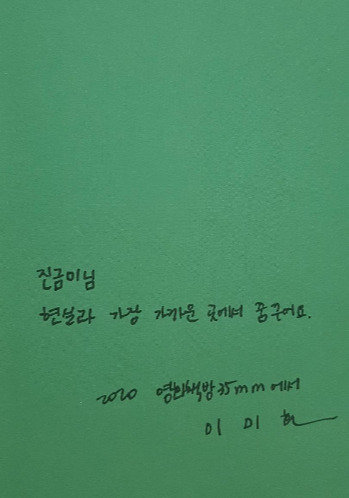 진금미님
현실과 가장 가까운 곳에서 꿈꾸어요.
2020 영화책방35mm에서
이 미 현